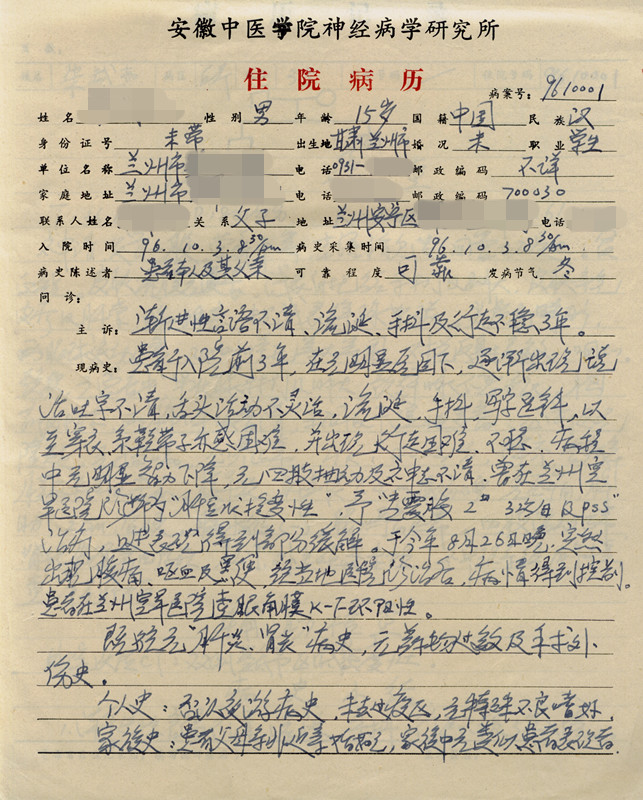 安徽中医学院神经病学研究所
住院病历
病案号: 9610001
姓名 性别 男 年龄 15岁 国籍 中国 民族 汉
身份证号 未带 出生地 甘肃兰州市 婚况 未 职业 学生
单位名称 兰州市 电话 0931- 邮政编码 不详
家庭地址 兰州市 电话 邮政编码 700030
联系人姓名 关系 父子 地址 兰州安宁区 电话
入院时间 96.10.3.8³⁰/am 病史采集时间 96.10.3.8³⁰/am
病史陈述者 患者本人及其父亲 可靠程度 可靠 发病节气 冬
问诊:
主诉: 渐进性言语不清、流涎、手抖及行走不稳3年。
现病史: 患者于入院前3年,在无明显原因下,逐渐出现说
话吐字不清,舌头活动不灵活,流涎,手抖,写字还抖,以
至穿衣、系鞋带子亦感困难,并出现行走困难、不稳,病程
中无明显智力下降,无四肢抽动及神志不清,曾在兰州空
军医院诊断为“肝豆状核变性”,予 2# 3次/日及pss”
治疗,上述表现得到部份缓解。于今年8月26日晚,突然
出现腹痛、呕血及黑便,经当地医院诊治后,病情得到控制。
患者在兰州空军医院查眼角膜K-F环阳性。
既往无“肝炎、肾炎”病史,无药物过敏及手术外
伤史。
个人史:否认疫游病史,未去过疫区,无特殊不良嗜好。
家族史:患者父母非近亲婚配,家族中无类似患者表现者。